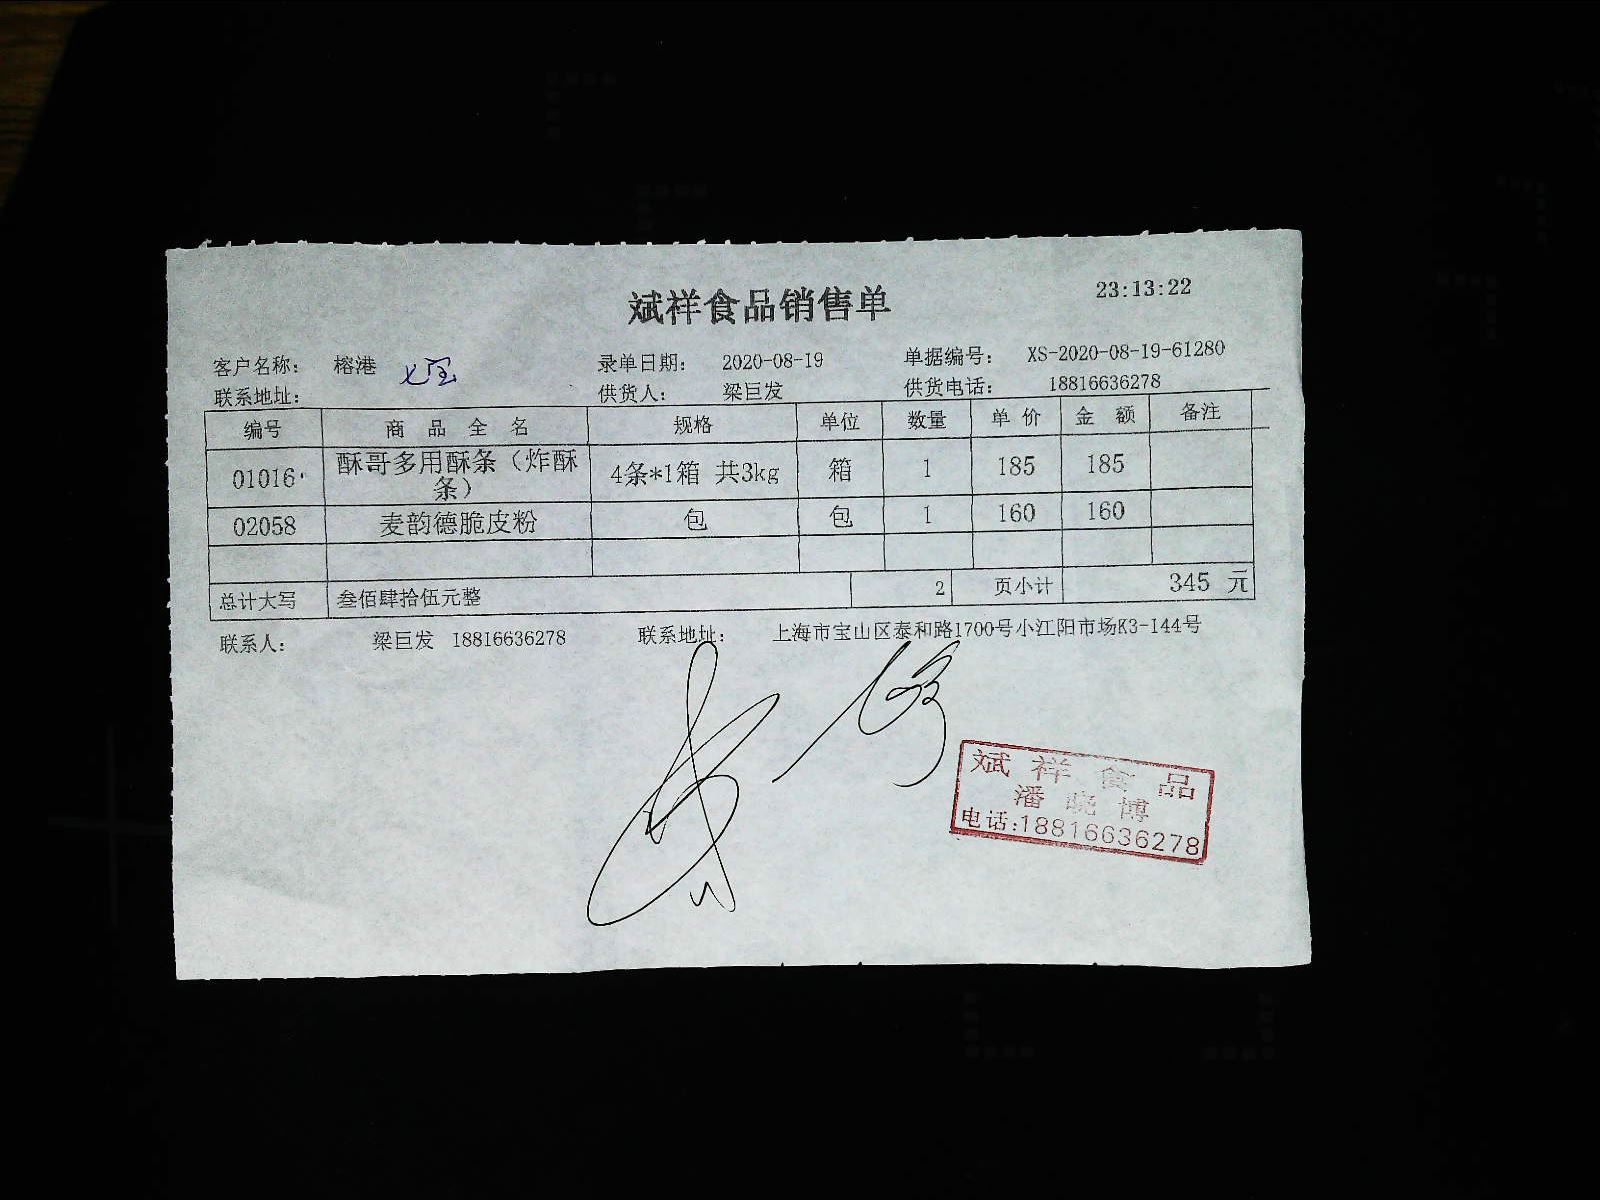 23:13:22
斌祥食品销售单
客户名称： 榕港 七宝 录单日期： 2020-08-19 单据编号： XS-2020-08-19-61280
联系地址： 供货人： 梁巨发 供货电话： 18816636278
编号 商 品 全 名 规格 单位 数量 单 价 金 额 备注
01016 酥哥多用酥条（炸酥条） 4条*1箱 共3kg 箱 1 185 185
02058 麦韵德脆皮粉 包 包 1 160 160
总计大写 叁佰肆拾伍元整 2 页小计 345 元
联系人： 梁巨发 18816636278 联系地址： 上海市宝山区泰和路1700号小江阳市场K3-144号
斌祥食品
潘晓博
电话:18816636278